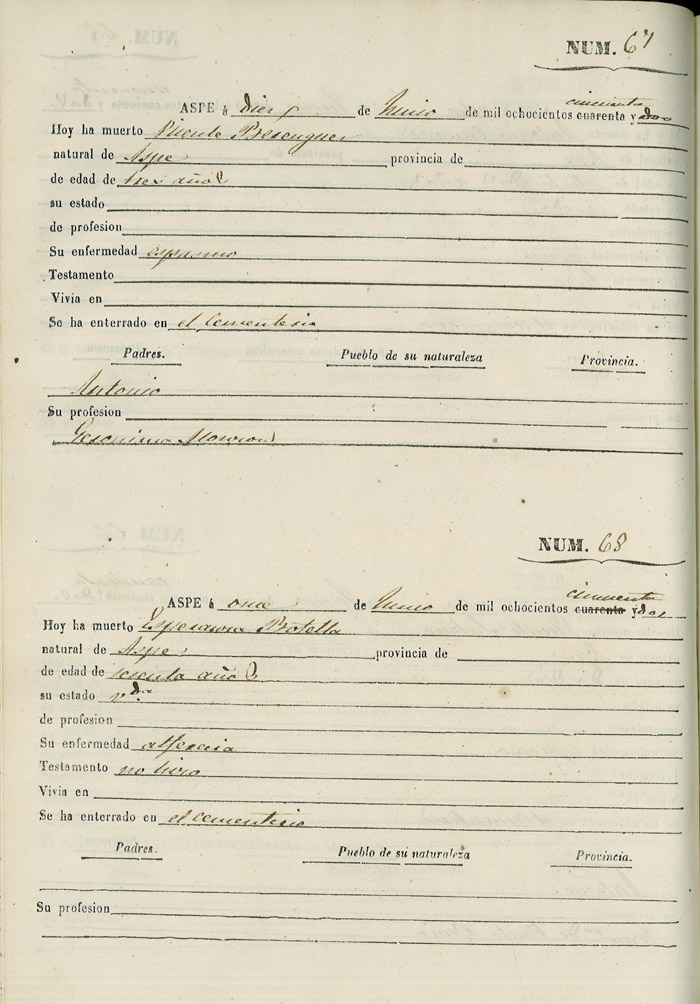 NUM. 67
ASPE á diez de Junio de mil ochocientos cuarenta cincuenta y dos
Hoy ha muerto Vicente Berenguer
natural de Aspe provincia de
de edad de tres años
su estado
de profesion
Su enfermedad espasmo
Testamento
Vivia en
Se ha enterrado en el Cementerio
Padres. Pueblo de su naturaleza Provincia.
Antonio
Su profesion
Geronima
NUM. 68
ASPE á once de Junio de mil ochocientos cuarenta cincuenta y dos
Hoy ha muerto Esperanza Botella
natural de Aspe provincia de
de edad de años
su estado v.da
de profesion
Su enfermedad alferecia
Testamento no hizo
Vivia en
Se ha enterrado en el Cementerio
Padres. Pueblo de su naturaleza Provincia.
Su profesion